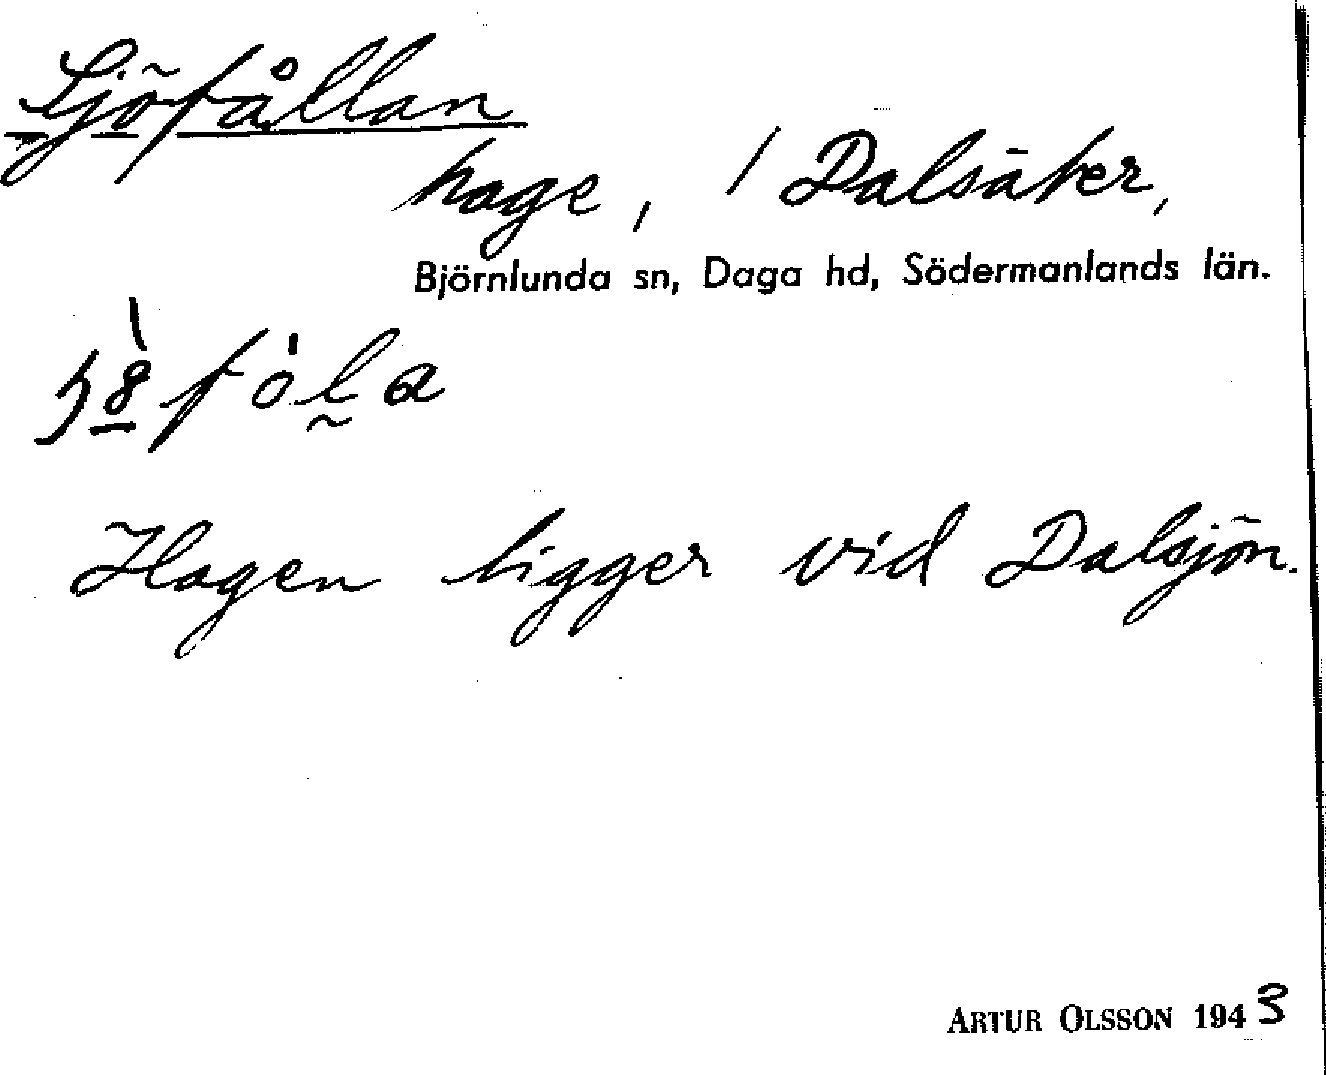 Sjöfållan
hage, / Dalsäter,
Björnlunda sn, Daga hd, Södermanlands län.
Hagen ligger vid Dalsjön.
ARTUR OLSSON 1943